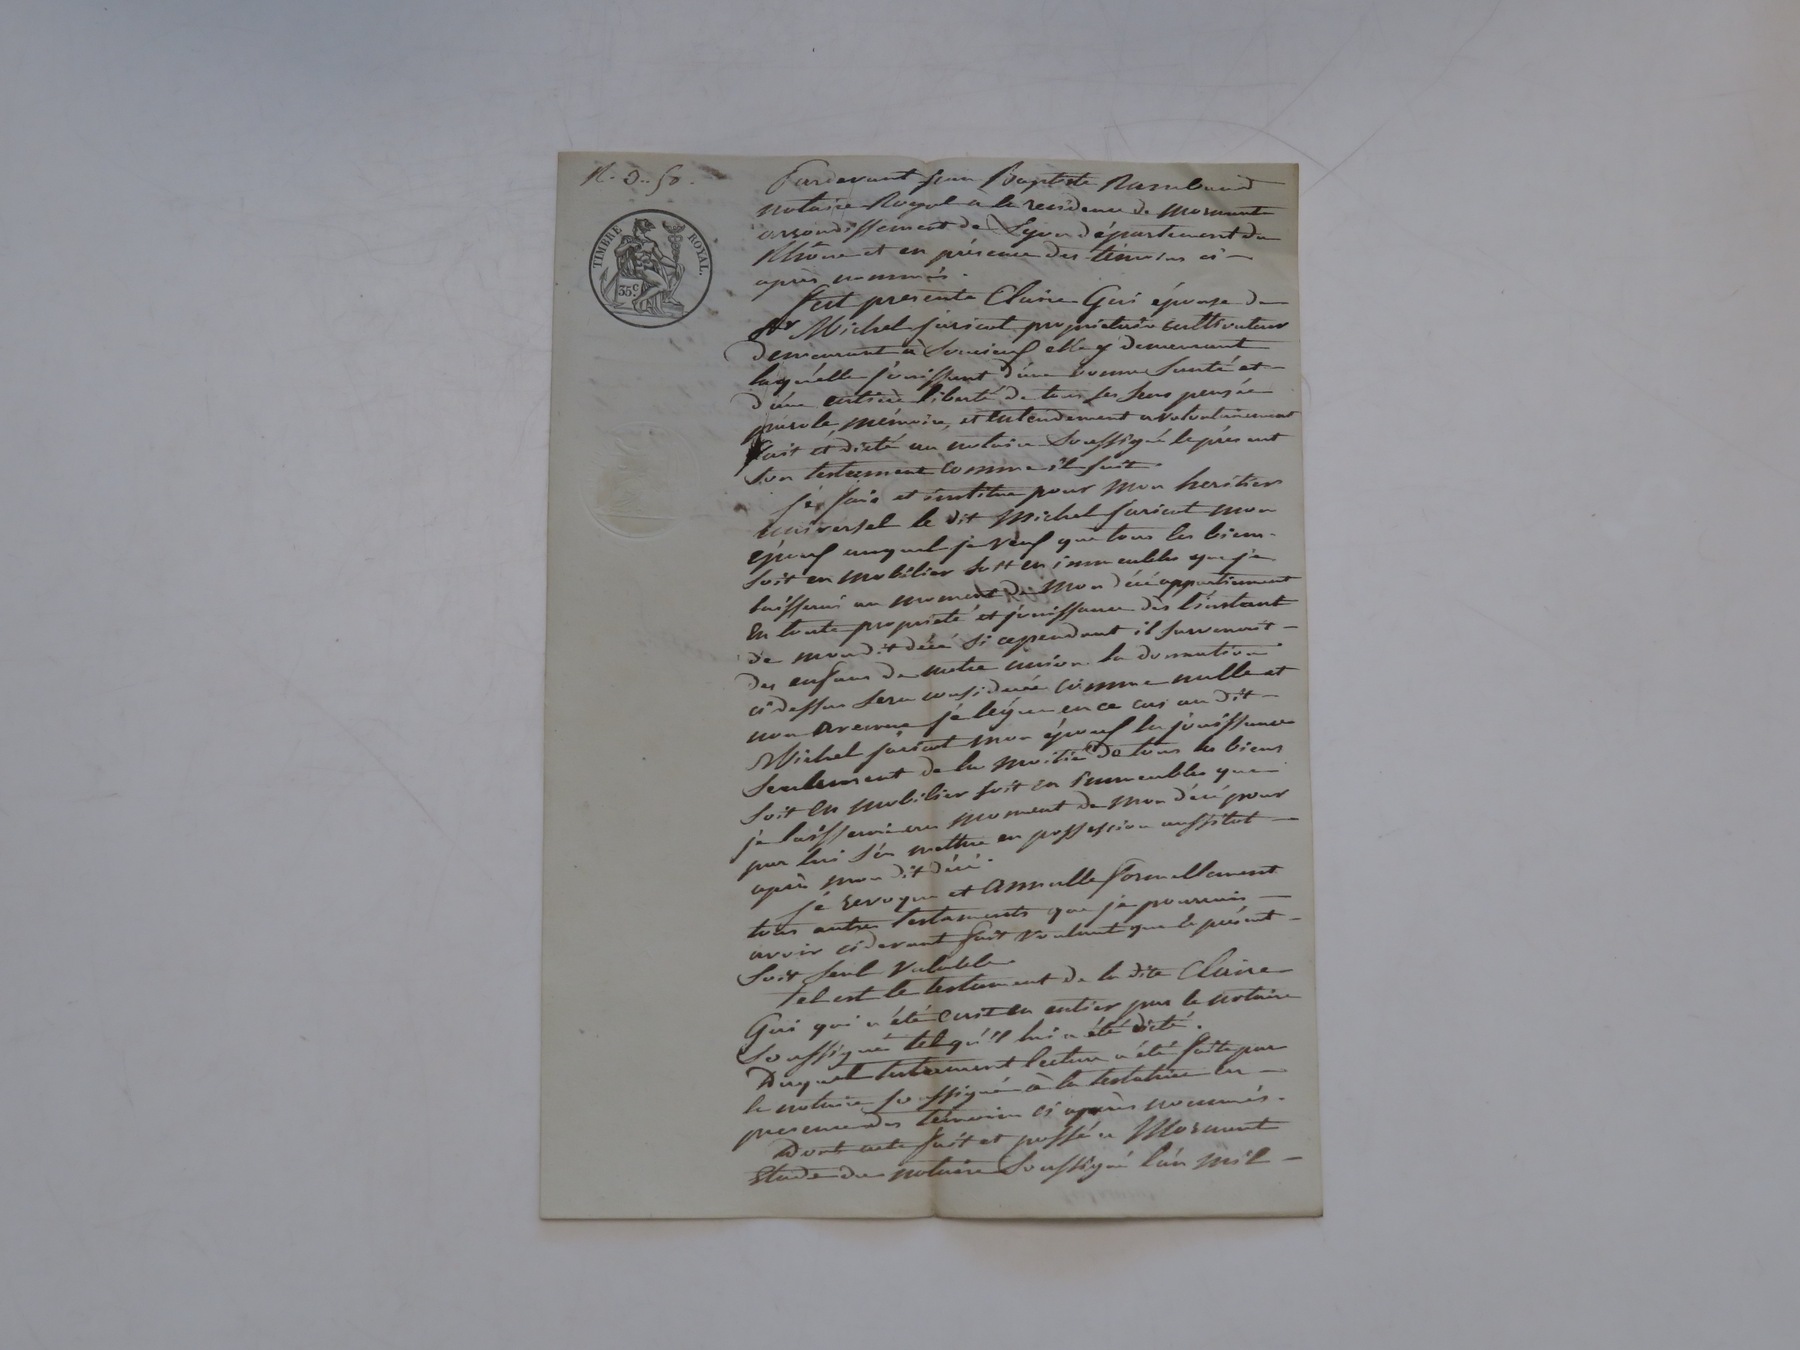 TIMBRE ROYAL.
35 c.
Pardevant Jean Baptiste Rambaud
notaire Royal a la residence de Mornant
arrondissement de Lyon département du
Rhône et en présence des témoins ci –
après nommés.
S'est presenté Claire Gui épouse de
Sr Michel Jaricot propriétaire cultivateur
demeurant à Soucieux elle y demeurant
laquelle jouissant d'une bonne santé et –
d'une entière liberté de tous ses sens pensée
parole, mémoire, et entendement a volontairement
fait et dicté au notaire soussigné le présent
son testament comme il suit.
Je fais et institue pour mon heritier
universel le dit Michel Jaricot mon
époux auquel je veux que tous les biens
soit en mobilier soit en immeubles que je
laisserai au moment de mon décé appartiennent
en toute propriété et jouissance dès l'instant
de mon dit décé si cependant il survenoit –
des enfans de notre union la donnation
ci dessus sera considerée comme nulle et
non avenue je légue en ce cas au dit –
Michel Jaricot mon époux la jouissance
seulement de la moitié de tous les biens
soit en mobilier soit en immeubles que
je laisserai au moment de mon décé pour
par lui s'en mettre en possession aussitot –
après mon dit décé.
Je revoque et annulle formellement
tous autres testaments que je pourrois –
avoir ci devant fait voulant que le présent –
soit seul valable.
Tel est le testament de la dite Claire
Gui qui a été ecrit en entier par le notaire
soussigné tel qu'il lui a été dicté.
Duquel testament lecture a été faite par
le notaire soussigné à la testatrice en –
presence des témoins ci après nommés.
Dont acte fait et passé a Mornant
Etude du notaire soussigné l'an mil –